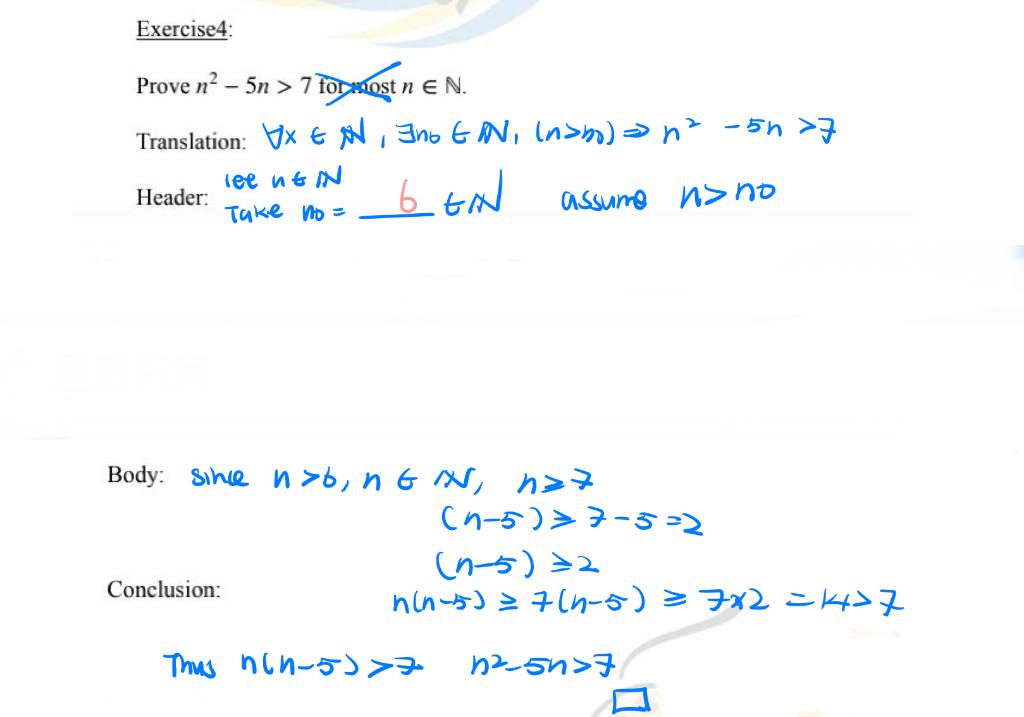 Exercise4:
Prove n² − 5n > 7 for most n ∈ ℕ.
Translation: ∀x ∈ ℕ, ∃n₀ ∈ ℕ, (n>n₀) ⇒ n² - 5n >7
Header: let n ∈ ℕ
Take n₀ = 6 ∈ ℕ assume n > n₀
Body: since n >6, n ∈ ℕ, n≥7
(n-5) ≥ 7-5=2
(n-5) ≥2
Conclusion:
n(n-5) ≥ 7(n-5) ≥ 7×2 = 14>7
Thus n(n-5) >7 n²-5n>7